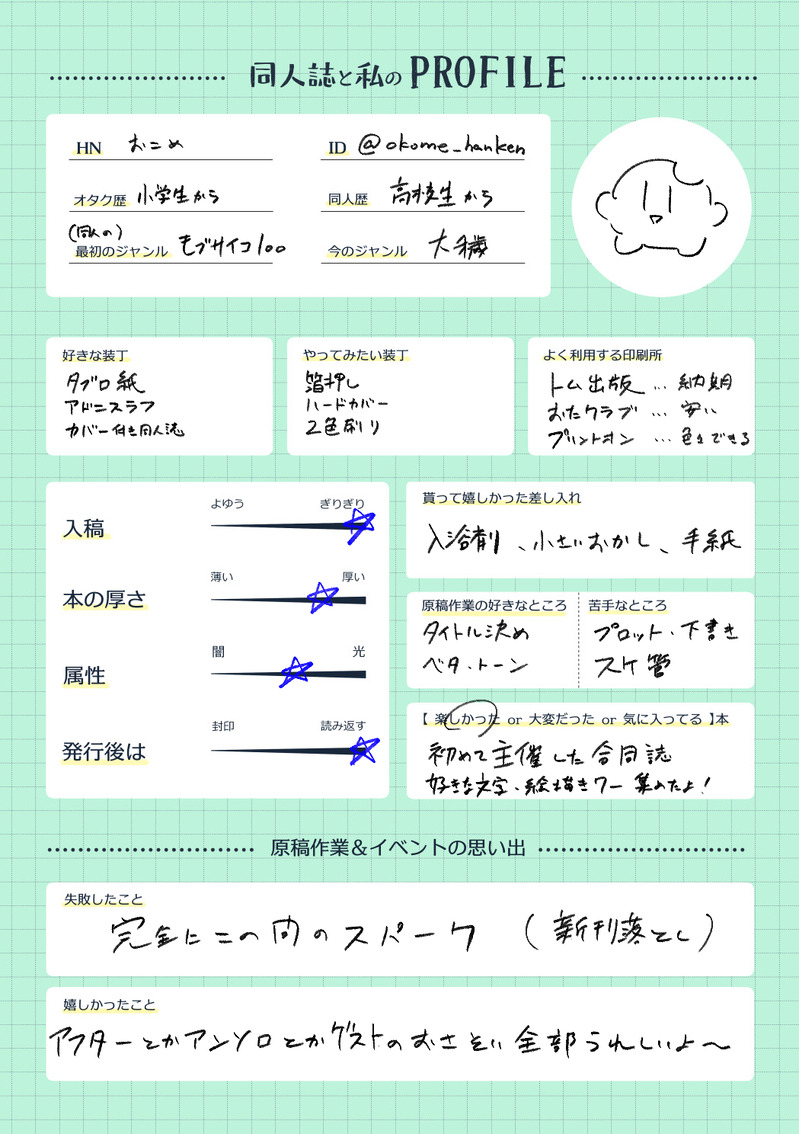 同人誌と私のPROFILE
HN おこめ
ID @okome_hanken
オタク歴 小学生から
同人歴 高校生から
(同人の)
最初のジャンル モブサイコ100
今のジャンル 大穢
好きな装丁
タブロ紙
アドニスラフ
カバー付き同人誌
やってみたい装丁
箔押し
ハードカバー
2色刷り
よく利用する印刷所
トム出版…納期
おたクラブ…安い
プリントオン…色々できる
よゆう ぎりぎり
入稿
薄い 厚い
本の厚さ
闇 光
属性
封印 読み返す
発行後は
貰って嬉しかった差し入れ
入浴剤、小さいおかし、手紙
原稿作業の好きなところ
タイトル決め
ベタ・トーン
苦手なところ
プロット・下書き
スケ管
【 楽しかった or 大変だった or 気に入ってる 】本
初めて主催した合同誌
好きな文字・絵描きワー集めたよ!
原稿作業&イベントの思い出
失敗したこと
完全にこの間のスパーク (新刊落とし)
嬉しかったこと
アフターとかアンソロとかゲストのおさそい全部うれしいよ〜